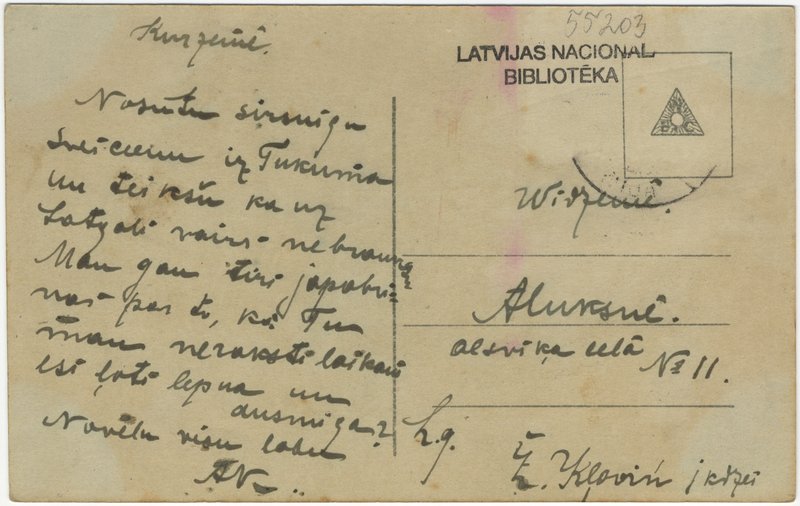 Kurzemē.
Nosūtu sirsnīgu
sveicienu iz Tukuma
un teikšu ka uz
Latgali vairs nebraukšu
Man gan tīri jāpabrī-
nas par to, ka Tu
man neraksti laikam
esi ļoti lepna un
dusmīga?
Novēlu visu labu
AK
55203
LATVIJAS NACIONAL
BIBLIOTĒKA
Widzemē.
Aluksnē.
alsviķa celā
№ 11.
L.g.
Ž. Kļaviņ jkdzei